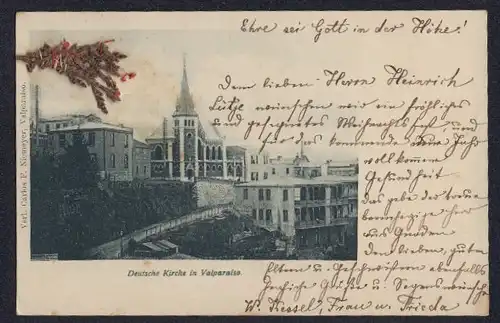 Ehre sei Gott in der Höhe!
Dem lieben Herrn Heinrich
Lütje wünschen wir ein fröhliches
und gesegnetes Weihnachtsfest, und
für das kommende neue Jahr
vollkommene
Gesundheit
das gebe der treue
barmherzige Herr
aus Gnaden
Den lieben, guten
Eltern u. Geschwistern ebenfalls
herzliche Grüße u. Segenswünsche
W. Kessel, Frau u. Frieda
Deutsche Kirche in Valparaiso.
Verl. Carlos F. Niemeyer, Valparaiso.